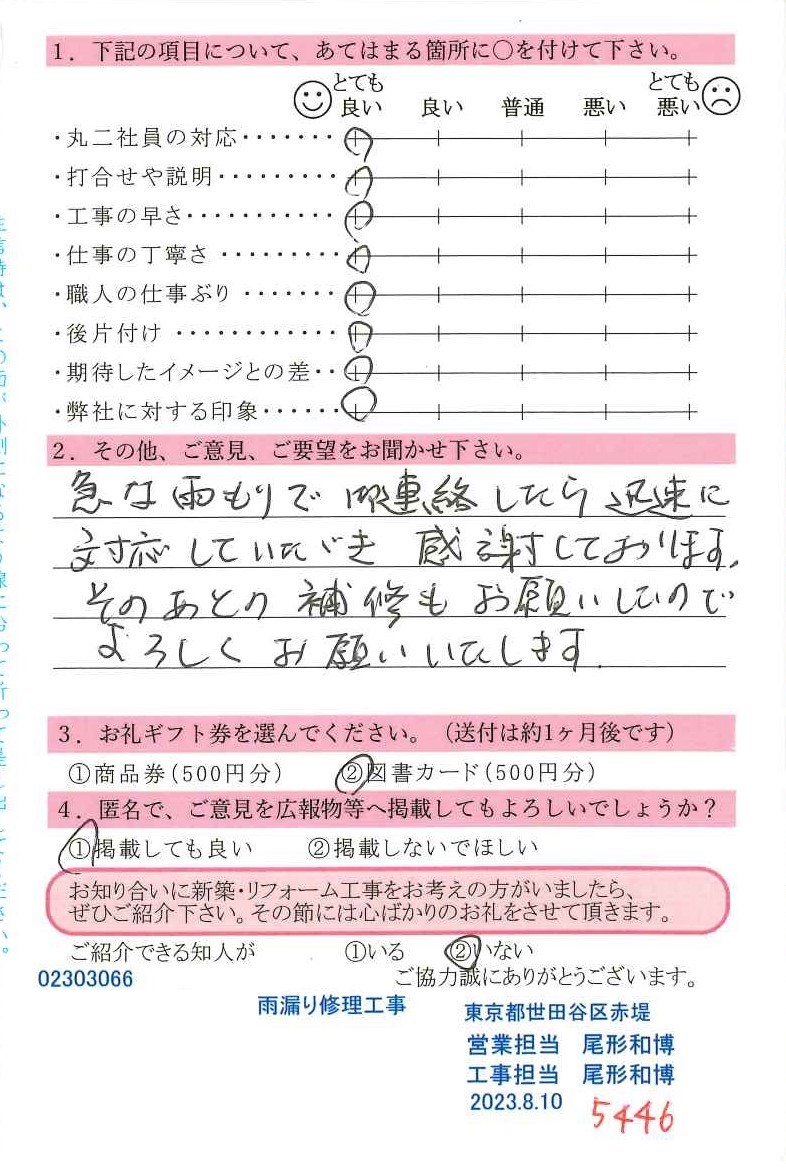 1．下記の項目について、あてはまる箇所に○を付けて下さい。
とても良い 良い 普通 悪い とても悪い
・丸二社員の対応・・・・・・・
・打合せや説明・・・・・・・・・
・工事の早さ・・・・・・・・・・・
・仕事の丁寧さ ・・・・・・・・・
・職人の仕事ぶり ・・・・・・・
・後片付け ・・・・・・・・・・・・
・期待したイメージとの差・・
・弊社に対する印象・・・・・・
2．その他、ご意見、ご要望をお聞かせ下さい。
急な雨もりで 連絡したら 迅速に
対応していただき 感謝しております。
そのあとの 補修も お願いしたので
よろしく お願いいたします.
3．お礼ギフト券を選んでください。（送付は約1ヶ月後です）
①商品券（500円分） ②図書カード（500円分）
4．匿名で、ご意見を広報物等へ掲載してもよろしいでしょうか？
①掲載しても良い ②掲載しないでほしい
お知り合いに新築・リフォーム工事をお考えの方がいましたら、
ぜひご紹介下さい。その節には心ばかりのお礼をさせて頂きます。
ご紹介できる知人が ①いる ②いない
ご協力誠にありがとうございます。
02303066
雨漏り修理工事
東京都世田谷区赤堤
営業担当 尾形和博
工事担当 尾形和博
2023.8.10
5446